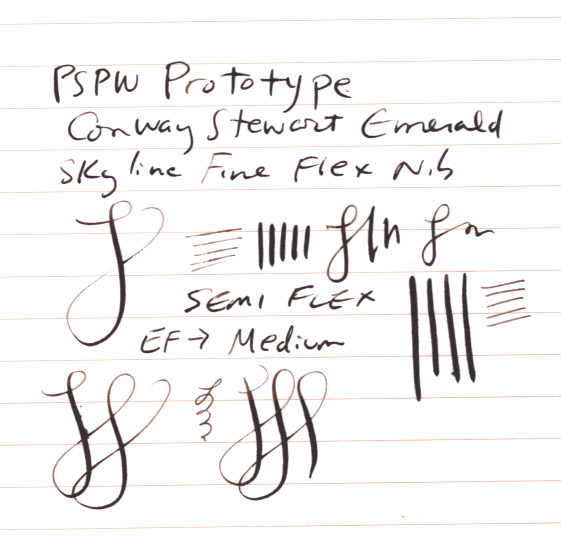 PSPW Prototype
Conway Stewart Emerald
Skyline Fine Flex Nib
SEMI FLEX
EF → Medium